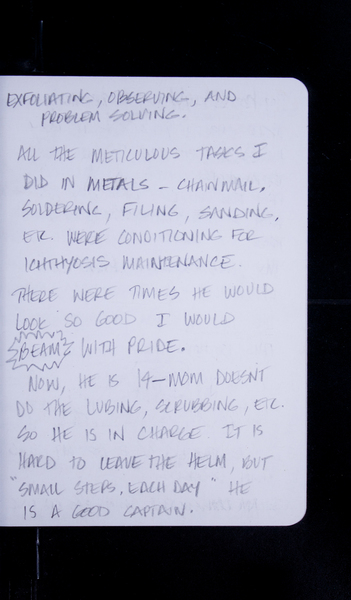 EXFOLIATING, OBSERVING, AND
PROBLEM SOLVING.
ALL THE METICULOUS TASKS I
DID IN METALS – CHAINMAIL,
SOLDERING, FILING, SANDING,
ETC. WERE CONDITIONING FOR
ICHTHYOSIS MAINTENANCE.
THERE WERE TIMES HE WOULD
LOOK SO GOOD I WOULD
BEAM WITH PRIDE.
NOW, HE IS 14–MOM DOESN'T
DO THE LUBING, SCRUBBING, ETC.
SO HE IS IN CHARGE. IT IS
HARD TO LEAVE THE HELM, BUT
"SMALL STEPS, EACH DAY" HE
IS A GOOD CAPTAIN.